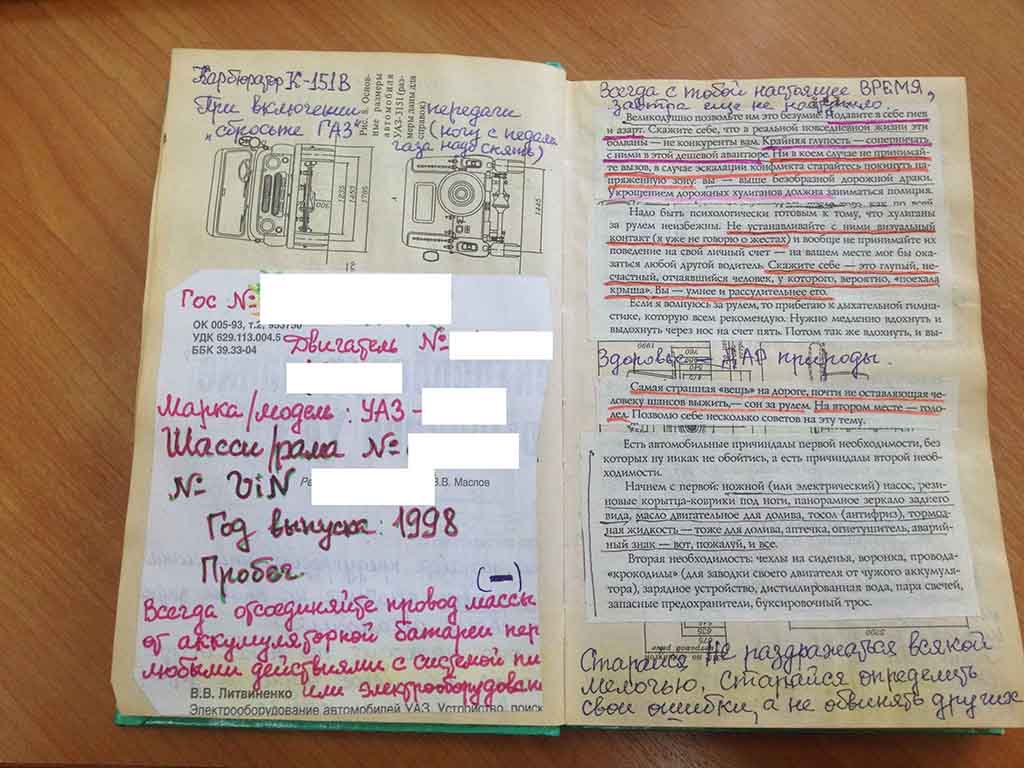 Карбюратор К-151В
При включении передачи
„сбросьте ГАЗ" (ногу с педали
газа надо снять)
Рис. 8. Основ-
ные размеры
автомобиля
УАЗ-3151 (раз-
меры даны для
справок)
Гос №
ОК 005-93, т.2, 953750
УДК 629.113.004.5
ББК 39.33-04
Двигатель №
Марка/модель: УАЗ -
Шасси/рама №
В.В. Маслов
№ ViN
Год выпуска: 1998
Пробег
(–)
Всегда отсоединяйте провод массы
от аккумуляторной батареи пер
любыми действиями с системой пи
или электрооборудован
В.В. Литвиненко
Электрооборудование автомобилей УАЗ. Устройство, поиск
Всегда с тобой настоящее ВРЕМЯ,
завтра еще не наступило.
Великодушно позвольте им это безумие. Подавите в себе гнев
и азарт. Скажите себе, что в реальной повседневной жизни эти
болваны — не конкуренты вам. Крайняя глупость — соперничать
с ними в этой дешевой авантюре. Ни в коем случае не принимай-
те вызов, в случае эскалации конфликта старайтесь покинуть на-
пряженную зону: вы — выше безобразной дорожной драки.
Укрощением дорожных хулиганов должна заниматься полиция.
Надо быть психологически готовым к тому, что хулиганы
за рулем неизбежны. Не устанавливайте с ними визуальный
контакт (я уже не говорю о жестах) и вообще не принимайте их
поведение на свой личный счет — на вашем месте мог бы ока-
заться любой другой водитель. Скажите себе — это глупый, не-
счастный, отчаявшийся человек, у которого, вероятно, «поехала
крыша». Вы — умнее и рассудительнее его.
Если я волнуюсь за рулем, то прибегаю к дыхательной гимна-
стике, которую всем рекомендую. Нужно медленно вдохнуть и
выдохнуть через нос на счет пять. Потом так же вдохнуть, и вы-
Здоровье — ДАР природы.
Самая страшная «вещь» на дороге, почти не оставляющая че-
ловеку шансов выжить,— сон за рулем. На втором месте — голо-
лед. Позволю себе несколько советов на эту тему.
Есть автомобильные причиндалы первой необходимости, без
которых ну никак не обойтись, а есть причиндалы второй необ-
ходимости.
Начнем с первой: ножной (или электрический) насос, рези-
новые корытца-коврики под ноги, панорамное зеркало заднего
вида, масло двигательное для долива, тосол (антифриз), тормоз-
ная жидкость — тоже для долива, аптечка, огнетушитель, аварий-
ный знак — вот, пожалуй, и все.
Вторая необходимость: чехлы на сиденья, воронка, провода-
«крокодилы» (для заводки своего двигателя от чужого аккумуля-
тора), зарядное устройство, дистиллированная вода, пара свечей,
запасные предохранители, буксировочный трос.
Старайся не раздражаться всякой
мелочью. Старайся определить
свои ошибки, а не обвинять других